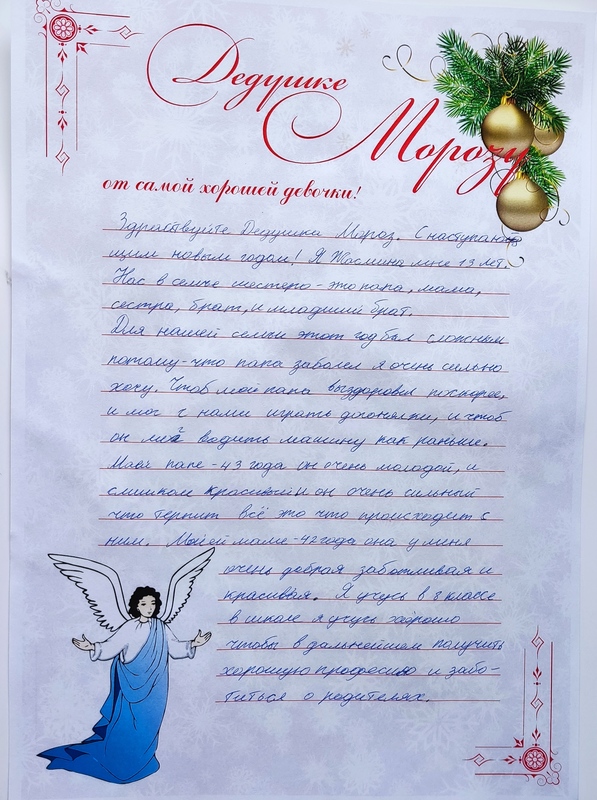 Дедушке
Морозу
от самой хорошей девочки!
Здравствуйте Дедушка Мороз. С наступаю-
щим новым годом! Я Жасмина мне 13 лет.
Нас в семье шестеро - это папа, мама,
сестра, брат, и младший брат.
Для нашей семьи этот год был сложным
потому-что папа заболел я очень сильно
хочу. Чтоб мой папа выздоровел поскорее,
и мог с нами играть догонялки, и чтоб
он мог водить машину как раньше.
Моей папе - 43 года он очень молодой, и
слишком красивый и он очень сильный
что терпит всё это что происходит с
ним. Моей маме - 42 года она у меня
очень добрая заботливая и
красивая. Я учусь в 8 классе
в школе я учусь хорошо
чтобы в дальнейшем получить
хорошую професию и забо-
титься о родителях.